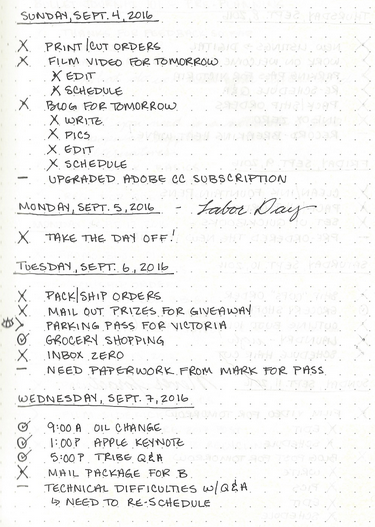 SUNDAY, SEPT. 4, 2016
X PRINT/CUT ORDERS
X FILM VIDEO FOR TOMORROW
X EDIT
X SCHEDULE
X BLOG FOR TOMORROW
X WRITE
X PICS
X EDIT
X SCHEDULE
— UPGRADED ADOBE CC SUBSCRIPTION
MONDAY, SEPT. 5, 2016 - Labor Day
X TAKE THE DAY OFF!
TUESDAY, SEPT. 6, 2016
X PACK/SHIP ORDERS
X MAIL OUT PRIZES FOR GIVEAWAY
> PARKING PASS FOR VICTORIA
GROCERY SHOPPING
X INBOX ZERO
— NEED PAPERWORK FROM MARK FOR PASS
WEDNESDAY, SEPT. 7, 2016
9:00A OIL CHANGE
1:00P APPLE KEYNOTE
5:00P TRIBE Q&A
X MAIL PACKAGE FOR B
— TECHNICAL DIFFICULTIES W/Q&A
↳ NEED TO RE-SCHEDULE